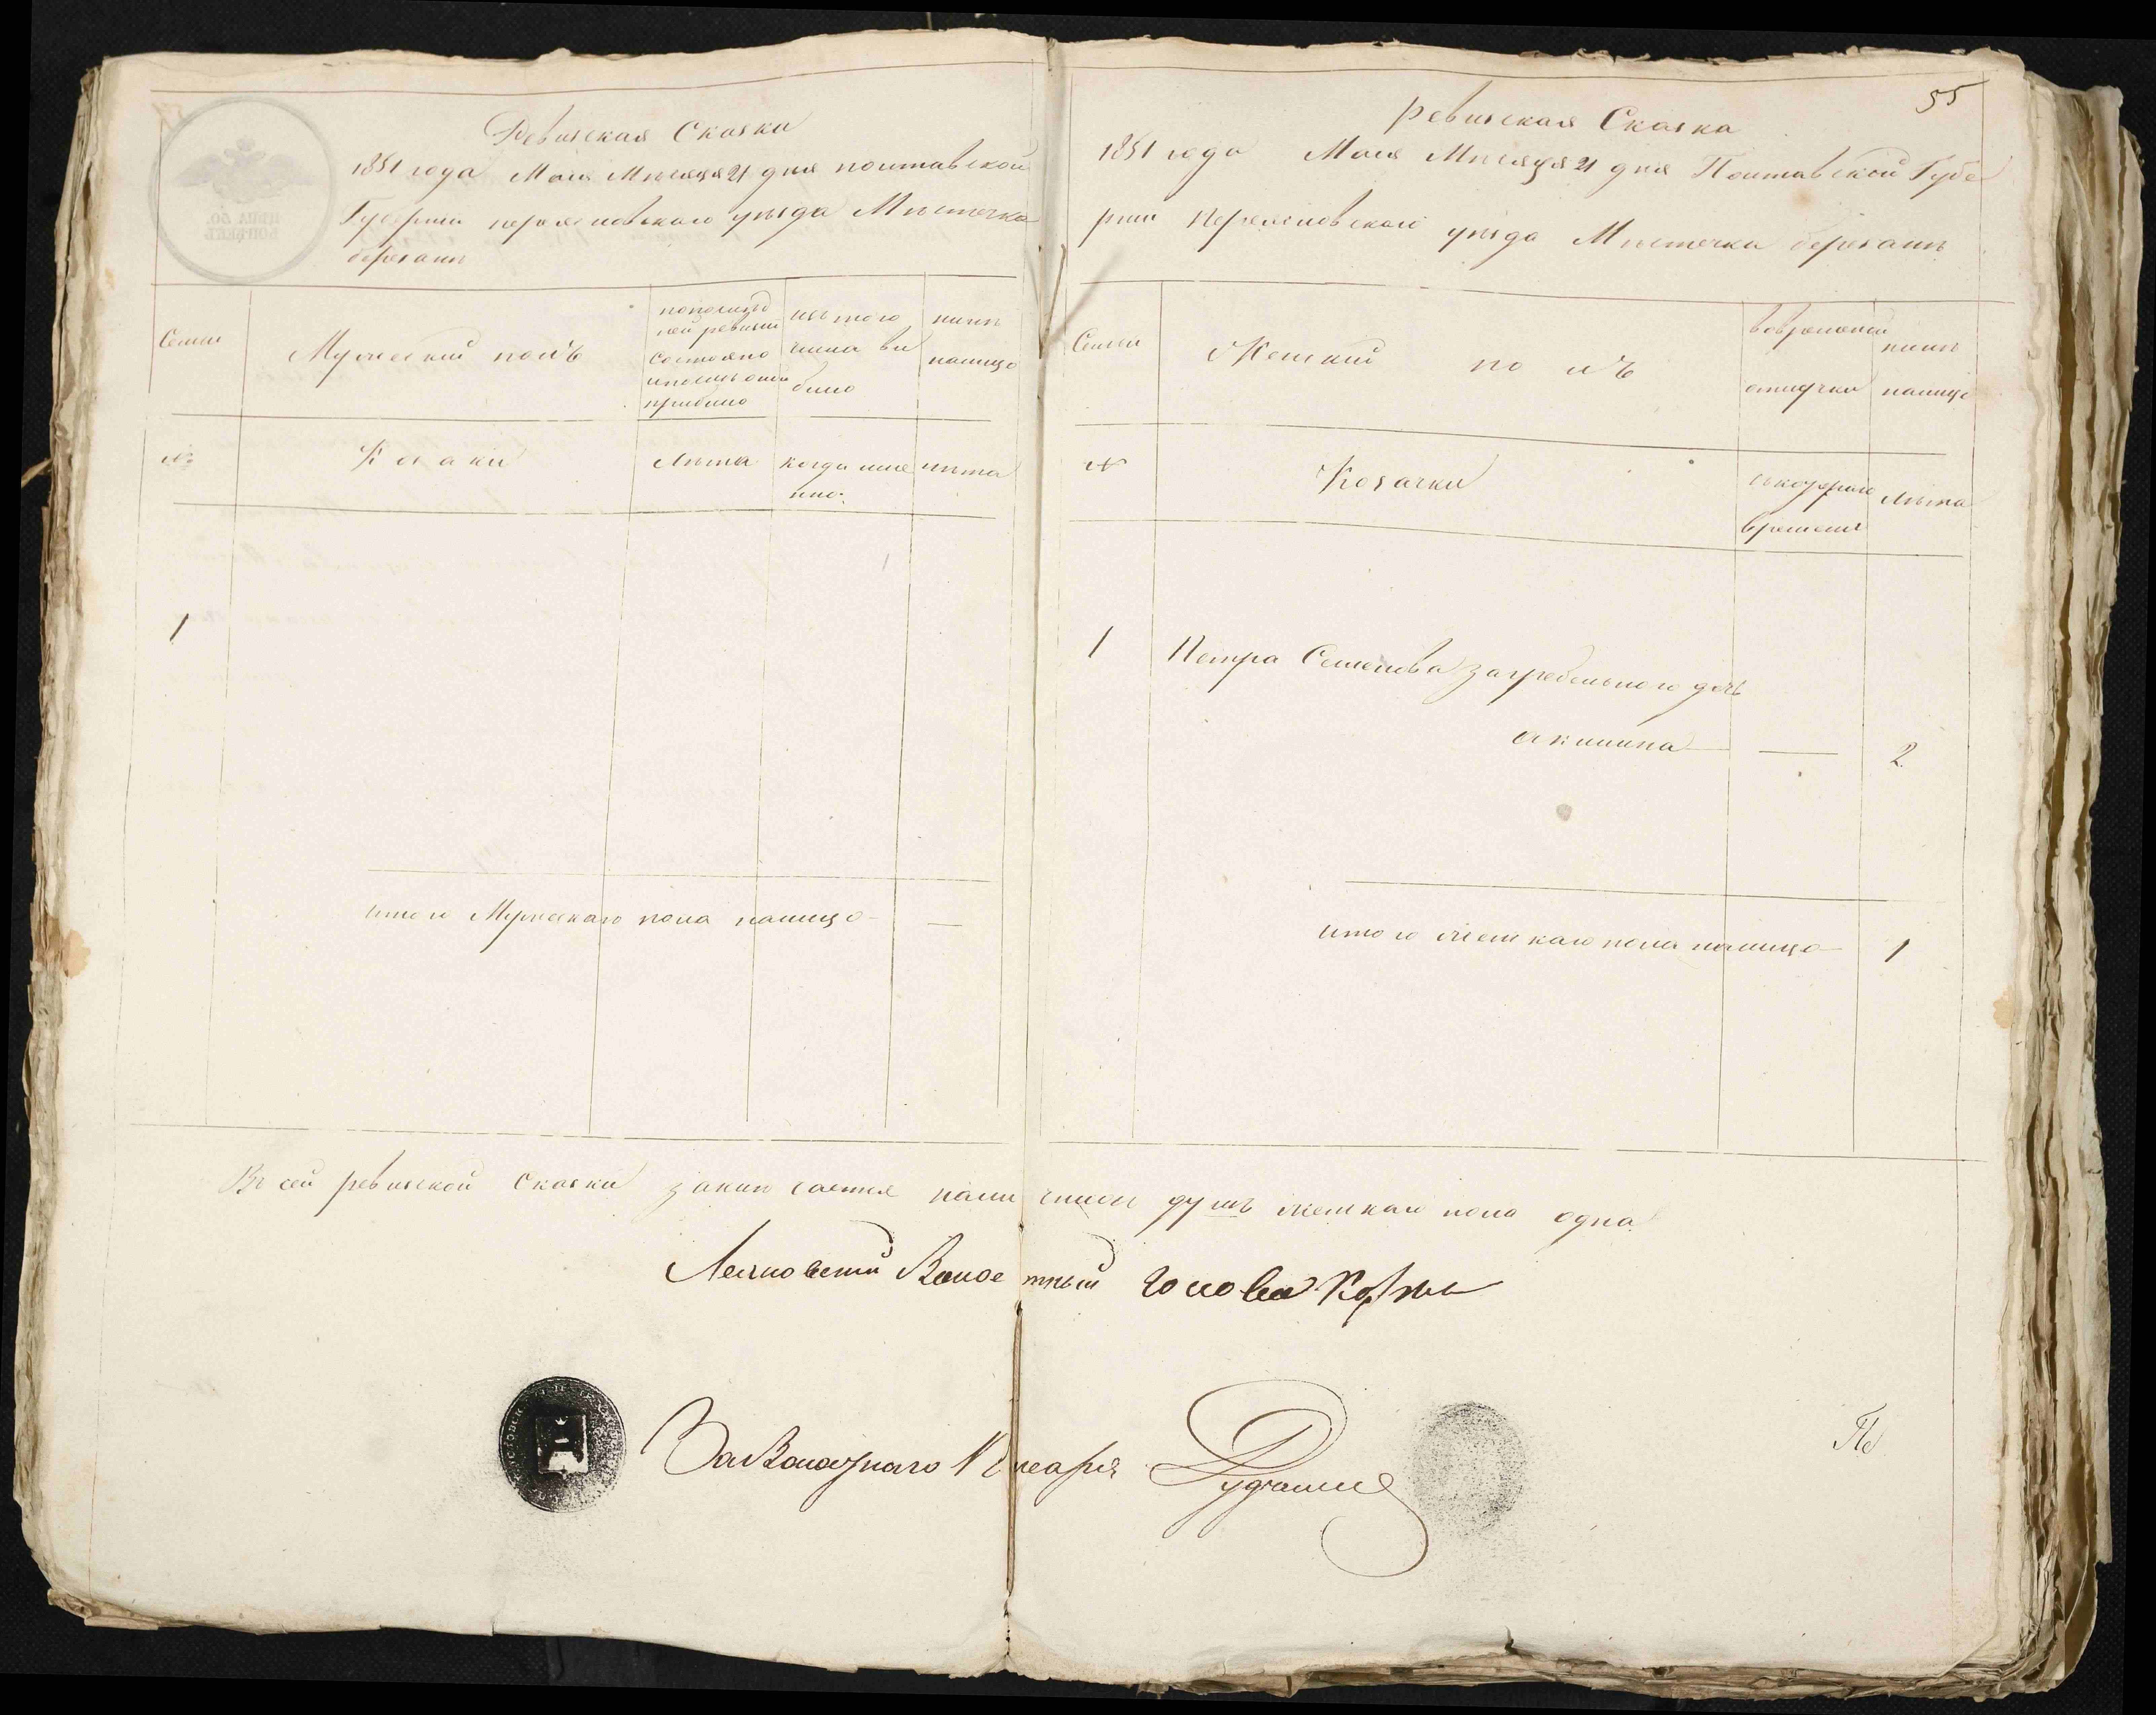 Ревизская Сказка
1851 года Мая Мѣсяца 21 дня полтавской
Губернии переясловского уѣзда Мѣстечка
березанѣ
Семьи
Мужеский полъ
попослѣд
ней ревизии
состояло
и после оной
прибыло
изъ того
числа вы
было
нынѣ
налицо
№
Козаки
Лѣта
когда име
нно
лѣта
1
итого Мужескаго пола налицо —
55
Ревизская Сказка
1851 года Мая Мѣсяца 21 дня Полтавской Губе
рнии Переясловского уѣзда Мѣстечка березанѣ
Семьи
Женский полъ
вовременной
отлучки
нынѣ
налицо
№
Козачки
съкоторого
времени
Лѣта
1 Петра Семенова загребельного дочь
акилина — 2
итого женскаго пола налицо 1
Въ сей ревизской Сказки заключается наличныхъ душъ женскаго пола одна
Волостный Голова
За Волостнаго Писаря